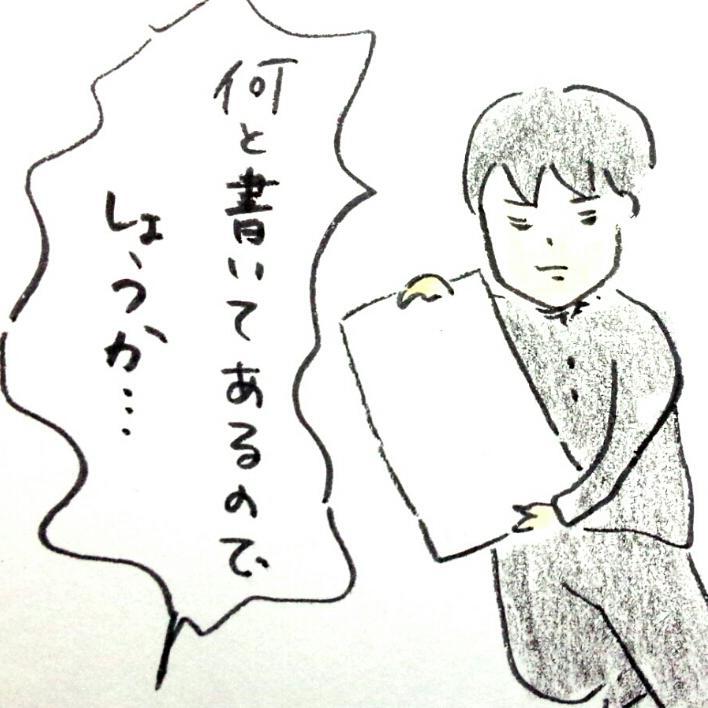 何と書いてあるので
しょうか…